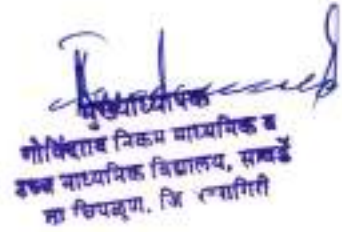 मुख्याध्यापक
गोविंदराव निकम माध्यमिक व
उच्च माध्यमिक विद्यालय, सावर्डे
ता चिपळूण. जि रत्नागिरी